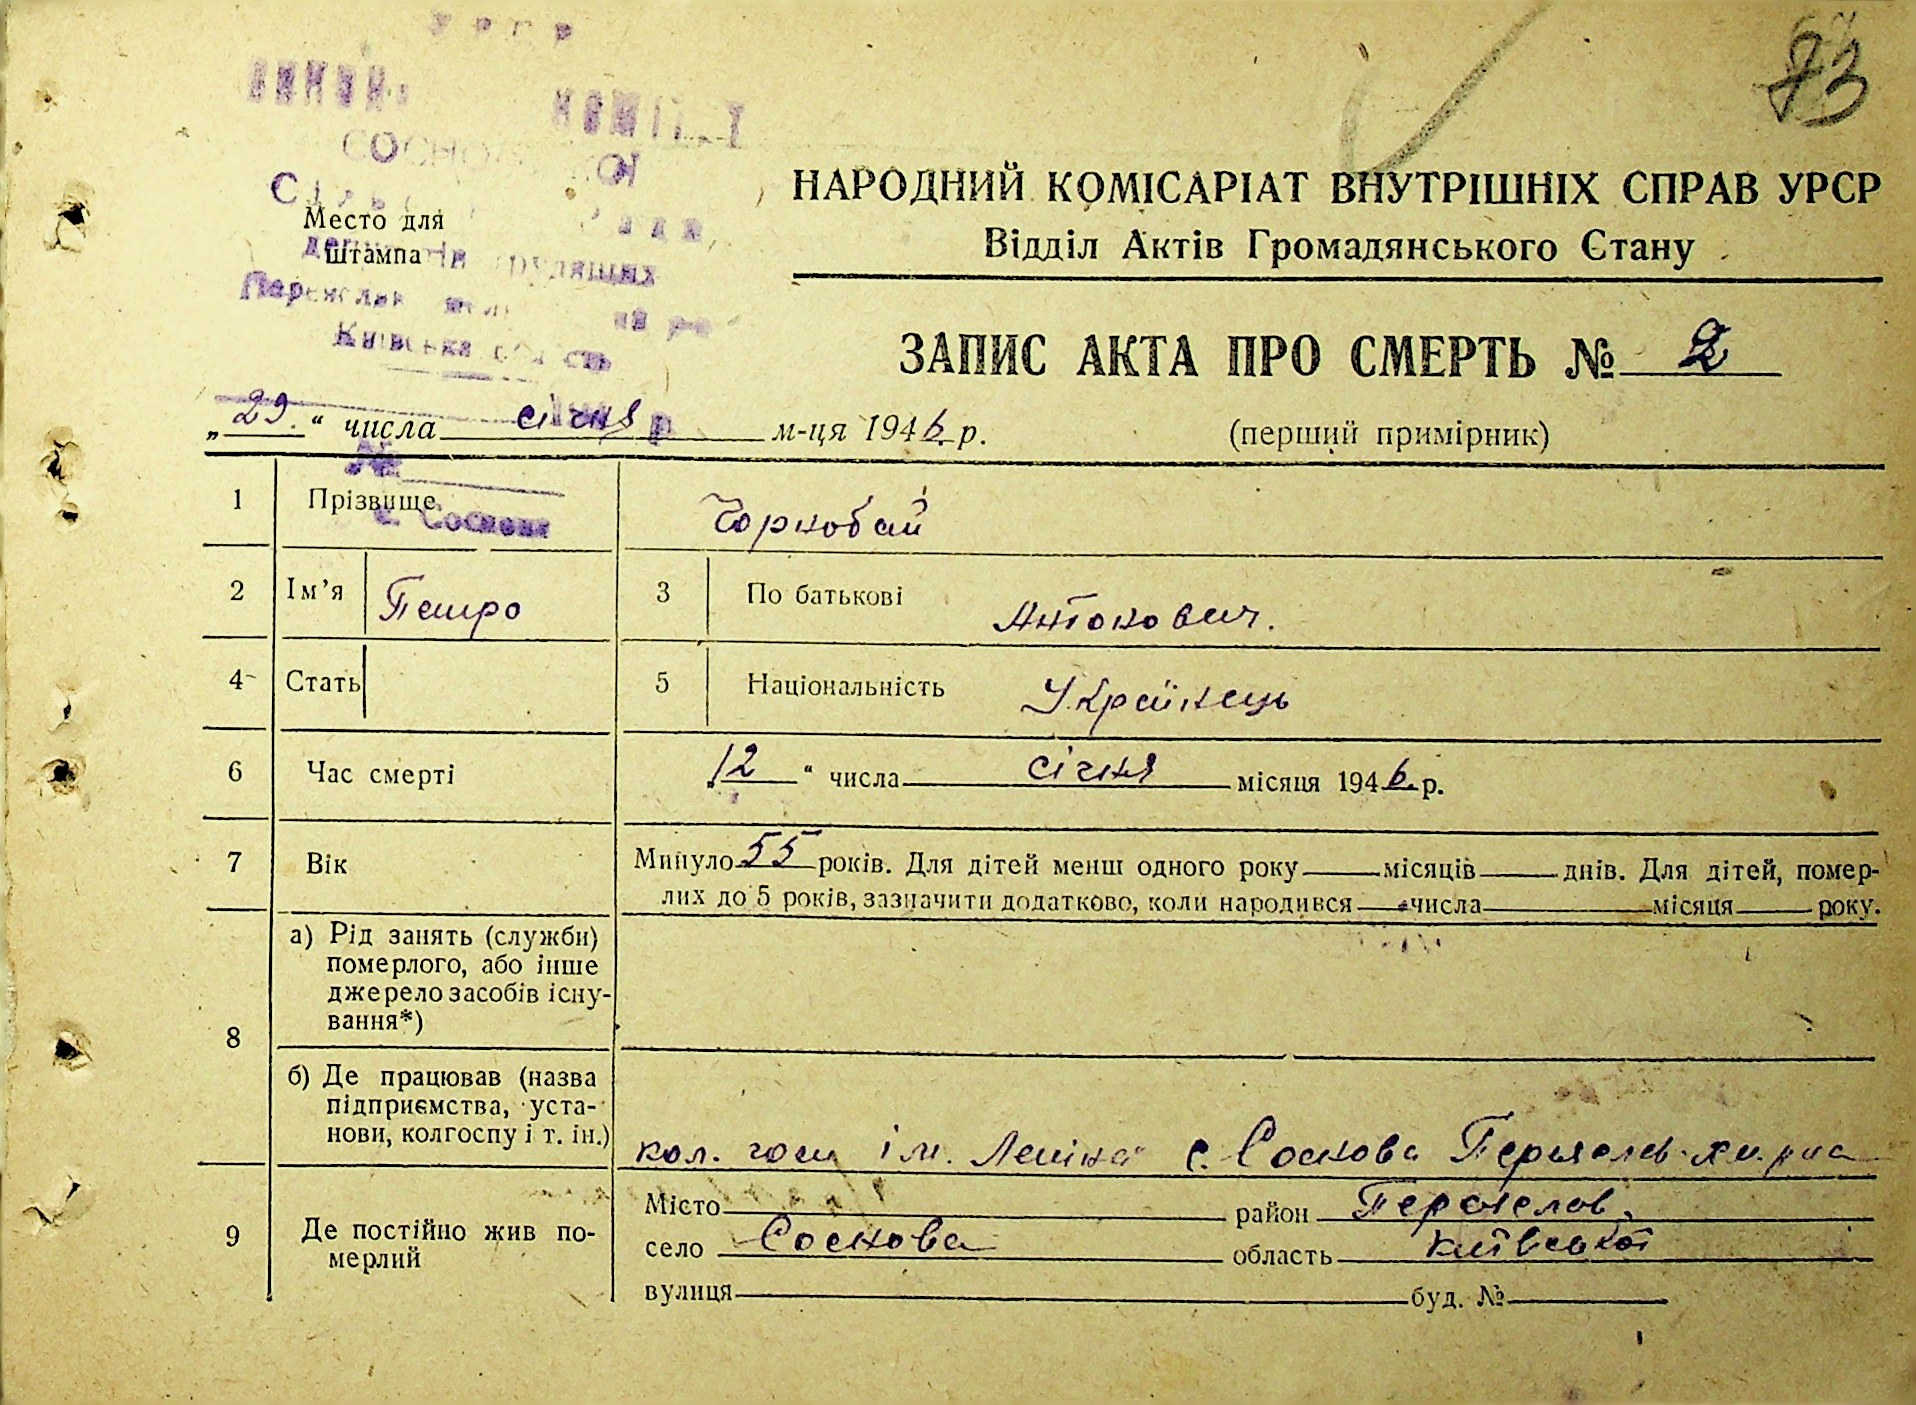 У Р С Р
73
СОСНОВСЬКОЇ
депутатів трудящих
Київська область
№
с. Соснова
Место для
Штампа
НАРОДНИЙ КОМІСАРІАТ ВНУТРІШНІХ СПРАВ УРСР
Відділ Актів Громадянського Стану
ЗАПИС АКТА ПРО СМЕРТЬ № 2
„29.“ числа січня м-ця 1946 р.
(перший примірник)
1 Прізвище Чорнобай
2 Ім’я Петро 3 По батькові Антонович.
4 Стать 5 Національність Українець
6 Час смерті „12“ числа січня місяця 1946 р.
7 Вік Минуло 55 років. Для дітей менш одного року місяців днів. Для дітей, помер-
лих до 5 років, зазначити додатково, коли народився числа місяця року.
8 а) Рід занять (служби)
померлого, або інше
джерело засобів існу-
вання*)
б) Де працював (назва
підприємства, уста-
нови, колгоспу і т. ін.)
кол. госп ім. Леніна с. Соснова
9 Де постійно жив по-
мерлий
Місто район Переяслов.
село Соснова область Київської
вулиця буд. №